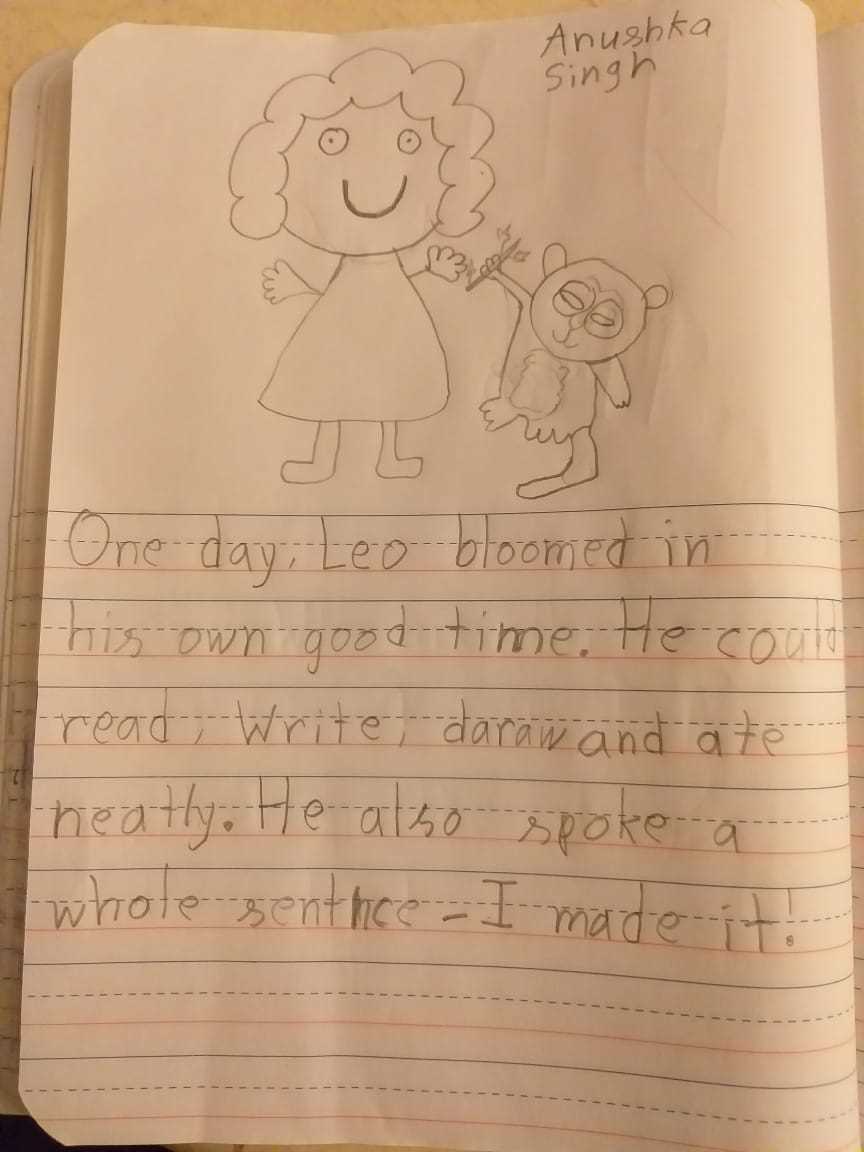 Anushka
Singh
One day, Leo bloomed in
his own good time. He could
read, Write, daraw and ate
neatly. He also spoke a
whole sentnce - I made it!